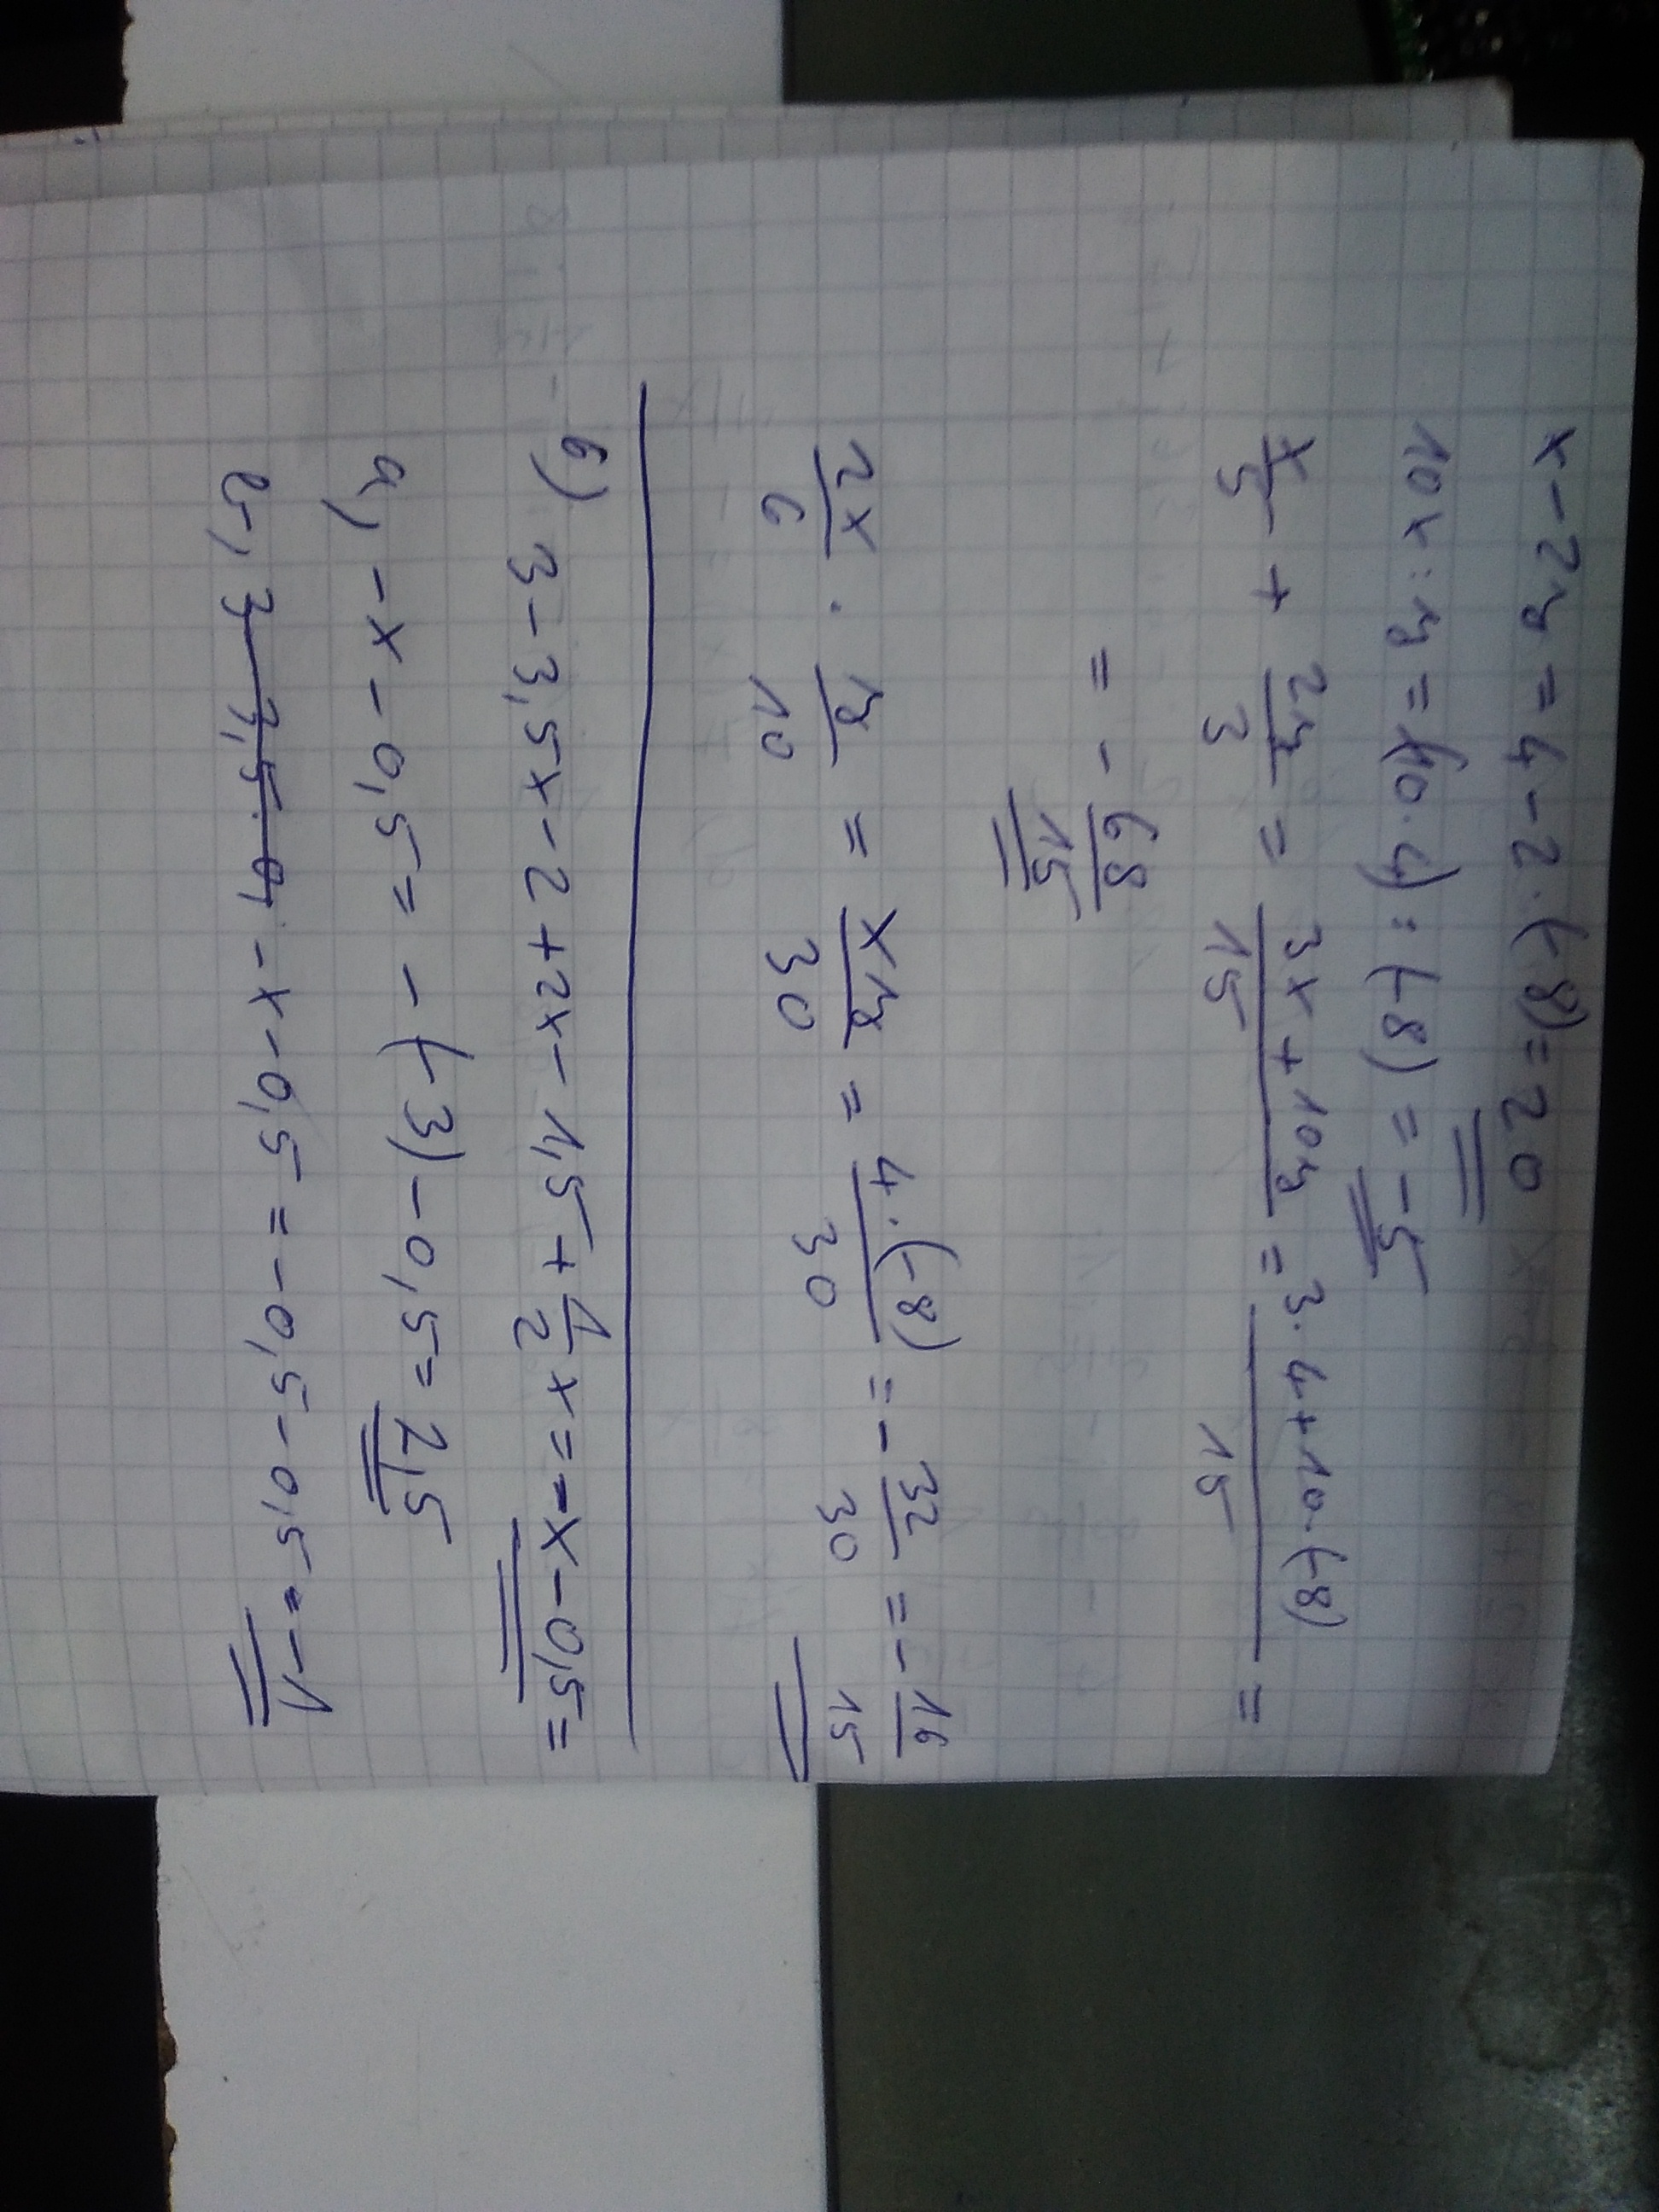 x - 2y = 4 - 2 · (-8) = 20
10x : y = (10 · 4) : (-8) = -5
x/5 + 2y/3 = (3x + 10y)/15 = (3 · 4 + 10 · (-8))/15 =
= - 68/15
2x/6 · y/10 = xy/30 = 4 · (-8)/30 = - 32/30 = - 16/15
6) 3 - 3,5x - 2 + 2x - 1,5 + 1/2 x = -x - 0,5 =
a, -x - 0,5 = - (-3) - 0,5 = 2,5
b, 3 - 3,5 · 0 - x - 0,5 = -0,5 - 0,5 = -1